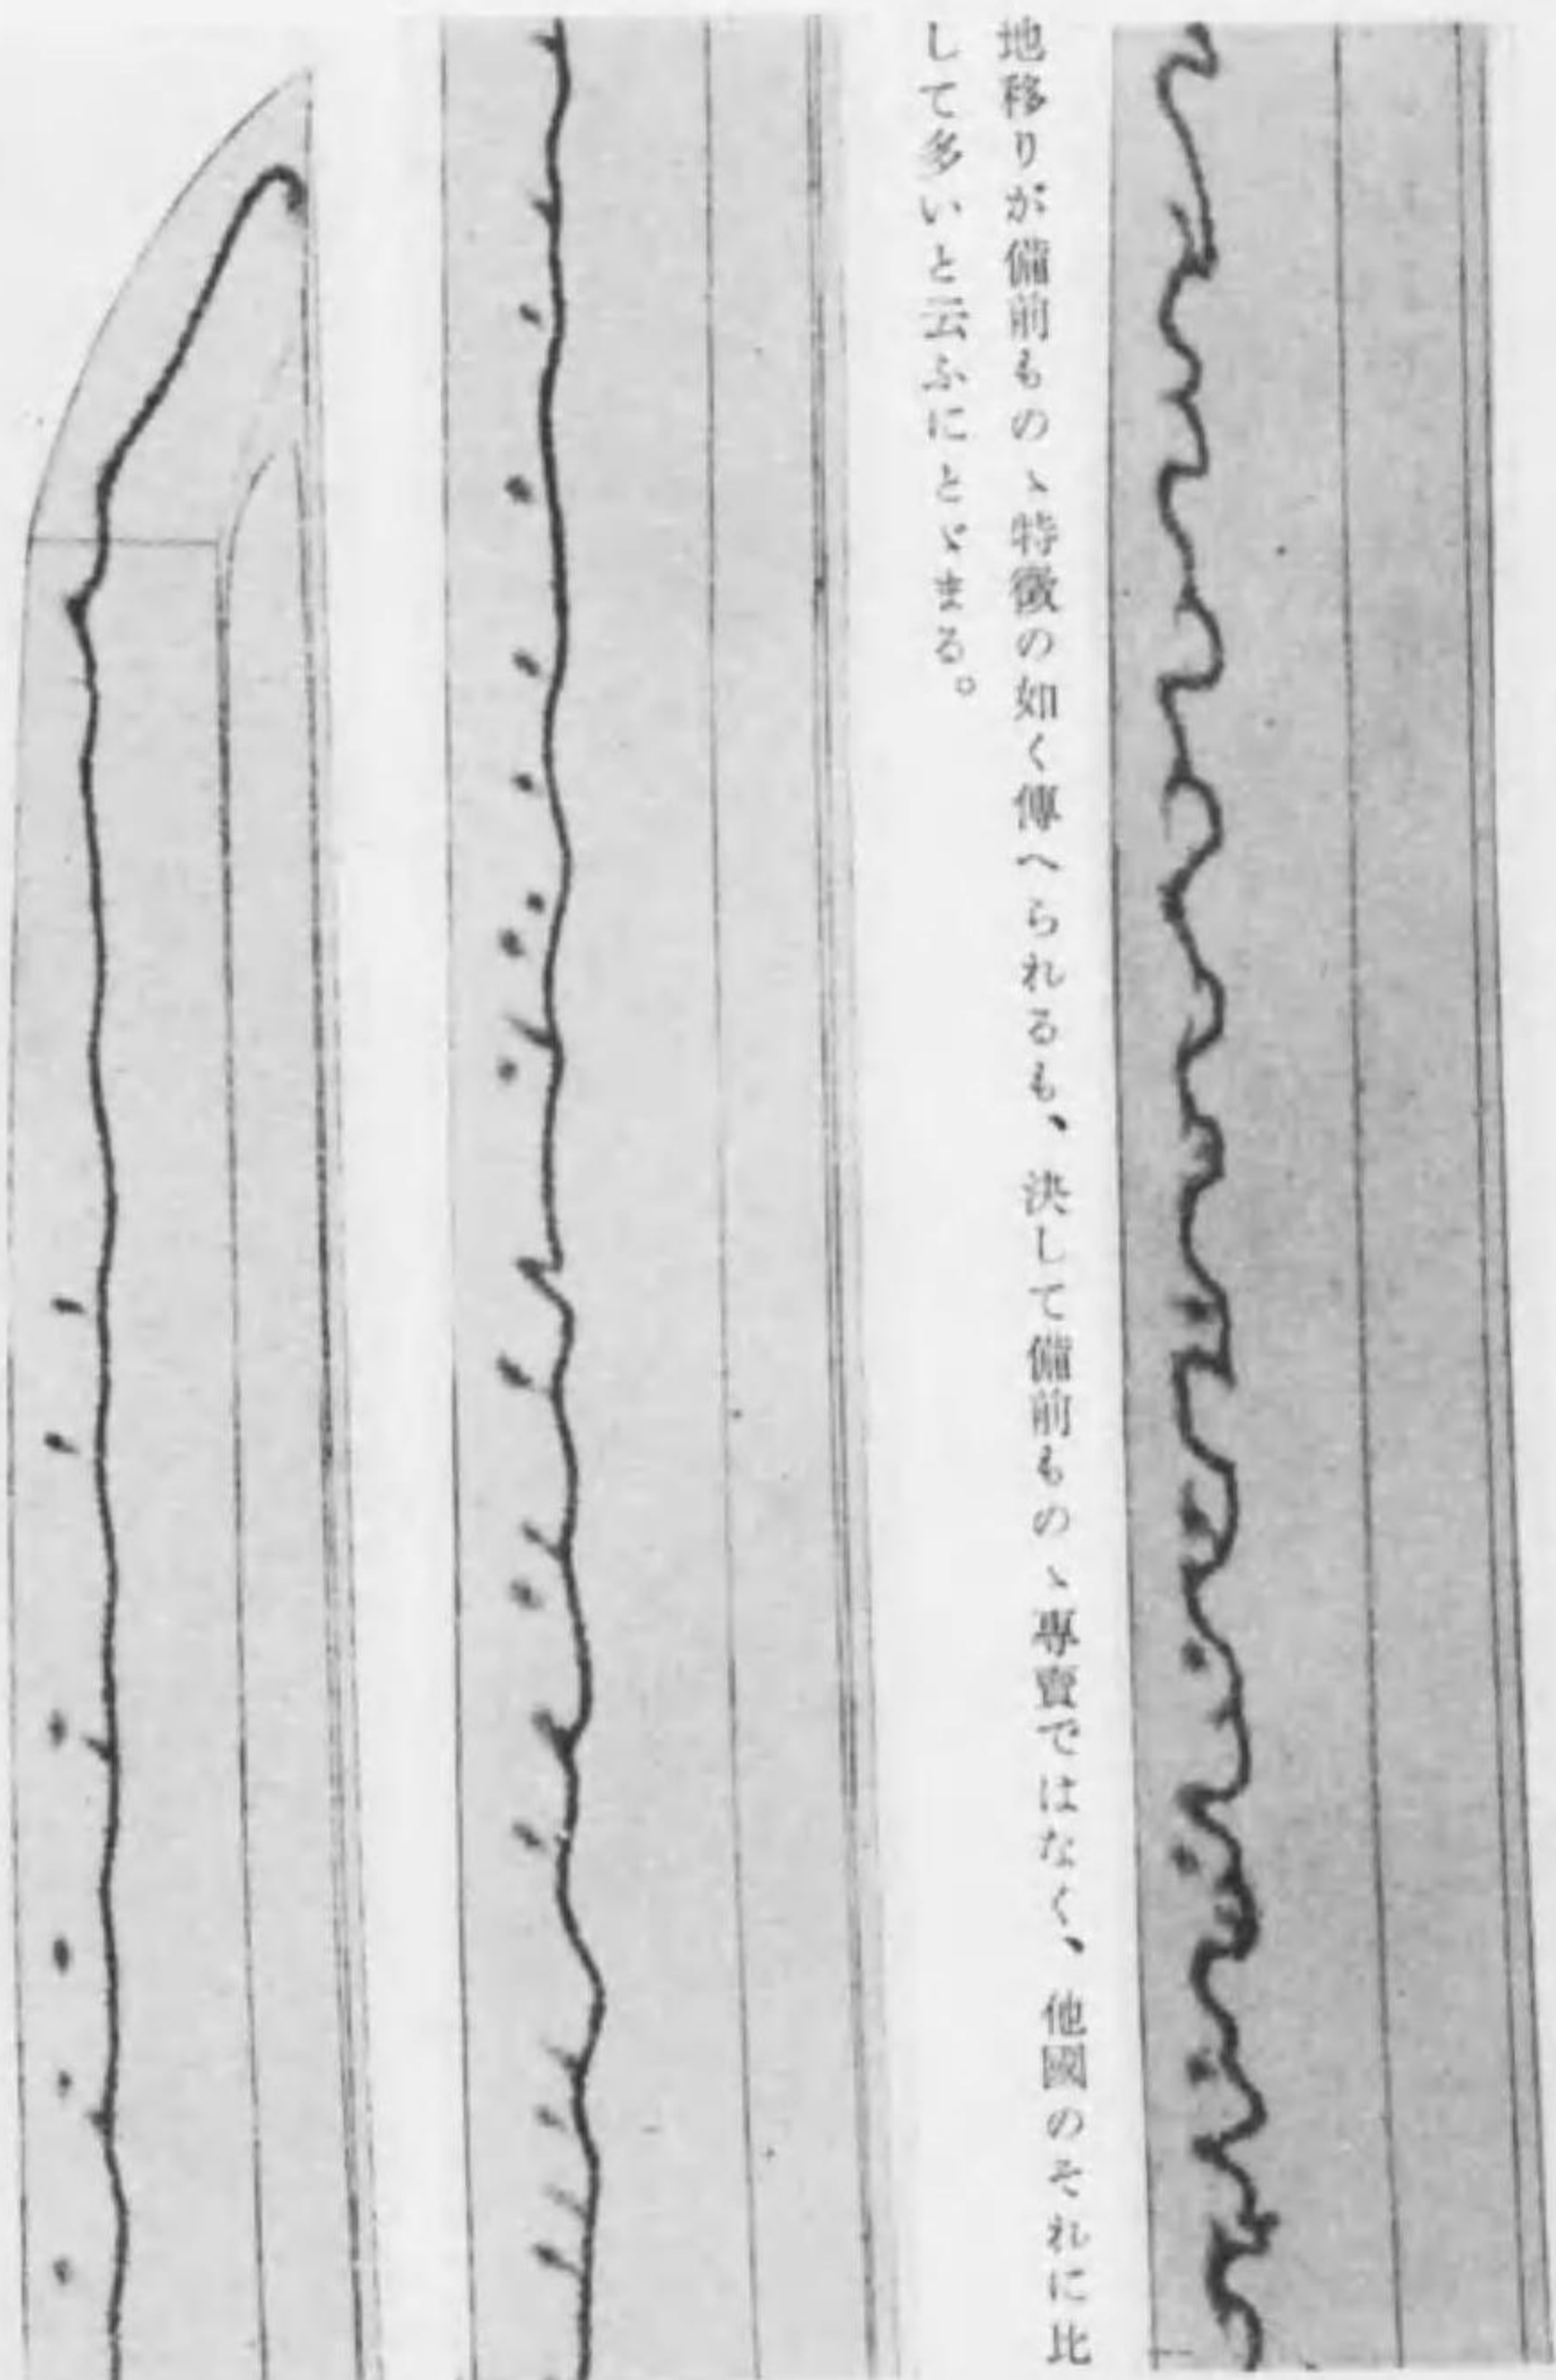 地移りが備前ものゝ特徴の如く傳へられるも、決して備前ものゝ專賣ではなく、他國のそれに比
して多いと云ふにとゞまる。